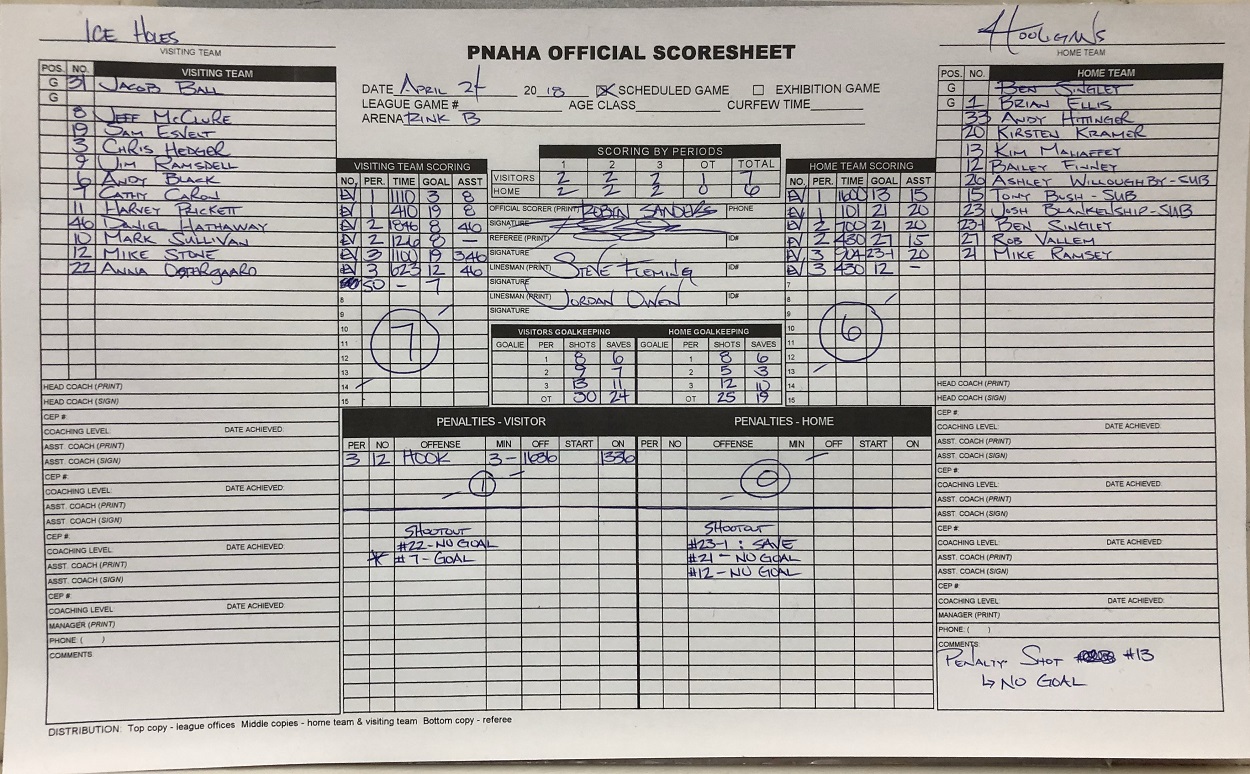 ICE HOLES
VISITING TEAM
HOOLIGANS
HOME TEAM
PNAHA OFFICIAL SCORESHEET
DATE APRIL 2018 SCHEDULED GAME EXHIBITION GAME
LEAGUE GAME # AGE CLASS CURFEW TIME
ARENA RINK B
POS. NO. VISITING TEAM
G 31 JACOB BALL
G
8 JEFF MCCLURE
19 SAM ESVELT
3 CHRIS HEDGER
9 JIM RAMSDELL
6 ANDY BLACK
CATHY CARON
11 HARVEY PRICKETT
46 DANIEL HATHAWAY
10 MARK SULLIVAN
12 MIKE STONE
22 ANNA
HEAD COACH (PRINT)
HEAD COACH (SIGN)
CEP #
COACHING LEVEL DATE ACHIEVED:
ASST. COACH (PRINT)
ASST. COACH (SIGN)
CEP #:
COACHING LEVEL DATE ACHIEVED:
ASST. COACH (PRINT)
ASST. COACH (SIGN)
CEP #:
COACHING LEVEL: DATE ACHIEVED:
ASST. COACH (PRINT)
ASST. COACH (SIGN)
CEP #:
COACHING LEVEL DATE ACHIEVED:
MANAGER (PRINT)
PHONE ( )
COMMENTS
VISITING TEAM SCORING
NO. PER. TIME GOAL ASST
EV 1 1110 3 8
EV 1 410 19 8
EV 2 1846 8 46
EV 2 1216 8 —
EV 3 1100 19 3/46
EV 3 623 12 46
SO - 7
8
9
10
11
12
13
14
15
7
SCORING BY PERIODS
1 2 3 OT TOTAL
VISITORS 2 2 2 1 7
HOME 2 2 2 0 6
OFFICIAL SCORER (PRINT) ROBIN SANDERS PHONE
SIGNATURE
REFEREE (PRINT) ID#
SIGNATURE
LINESMAN (PRINT) STEVE FLEMING ID#
SIGNATURE
LINESMAN (PRINT) JORDAN OWEN ID#
SIGNATURE
VISITORS GOALKEEPING HOME GOALKEEPING
GOALIE PER SHOTS SAVES GOALIE PER SHOTS SAVES
1 8 6 1 8 6
2 9 7 2 5 3
3 13 11 3 12 10
OT 30 24 OT 25 19
HOME TEAM SCORING
NO. PER. TIME GOAL ASST
EV 1 1600 13 15
EV 1 101 21 20
EV 2 700 21 20
EV 2 430 27 15
EV 3 904 23-1 20
EV 3 430 12 -
7
8
9
10
11
12
13
14
15
6
POS. NO. HOME TEAM
G BEN SINGLEY
G 1 BRIAN ELLIS
33 ANDY HITTINGER
20 KIRSTEN KRAMER
13 KIM MAHAFFEY
12 BAILEY FINNEY
26 ASHLEY WILLOUGHBY-SUB
15 TONY BUSH-SUB
23 JOSH BLANKELSHIP-SUB
23-1 BEN SINGLEY
27 ROB VALLEM
21 MIKE RAMSEY
HEAD COACH (PRINT)
HEAD COACH (SIGN)
CEP #:
COACHING LEVEL: DATE ACHIEVED:
ASST. COACH (PRINT)
ASST. COACH (SIGN)
CEP #:
COACHING LEVEL: DATE ACHIEVED:
ASST. COACH (PRINT)
ASST. COACH (SIGN)
CEP #:
COACHING LEVEL: DATE ACHIEVED:
ASST. COACH (PRINT)
ASST. COACH (SIGN)
CEP #
COACHING LEVEL DATE ACHIEVED:
MANAGER (PRINT)
PHONE: ( )
COMMENTS
PENALTY SHOT #13
↳ NO GOAL
PENALTIES - VISITOR
PER NO OFFENSE MIN OFF START ON
3 12 HOOK 3 - 1636 1336
1
SHOOTOUT
#22-NO GOAL
* #7-GOAL
PENALTIES - HOME
PER NO OFFENSE MIN OFF START ON
0
SHOOTOUT
#23-1: SAVE
#21-NO GOAL
#12-NO GOAL
DISTRIBUTION: Top copy - league offices Middle copies - home team & visiting team Bottom copy - referee